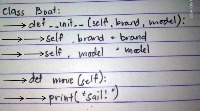 class Boat:
→def __init__(self, brand, model):
→→self.brand = brand
→→self.model = model
→def move(self):
→→print("Sail!")